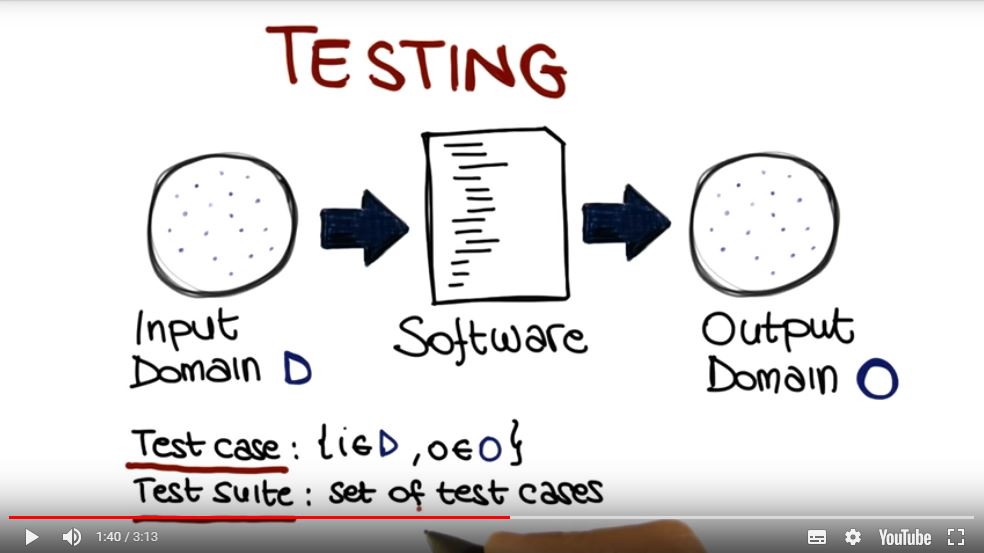 TESTING
Input
Domain D
Software
Output
Domain O
Test case : {i∈D , o∈O}
Test suite : set of test cases
1:40 / 3:13
YouTube